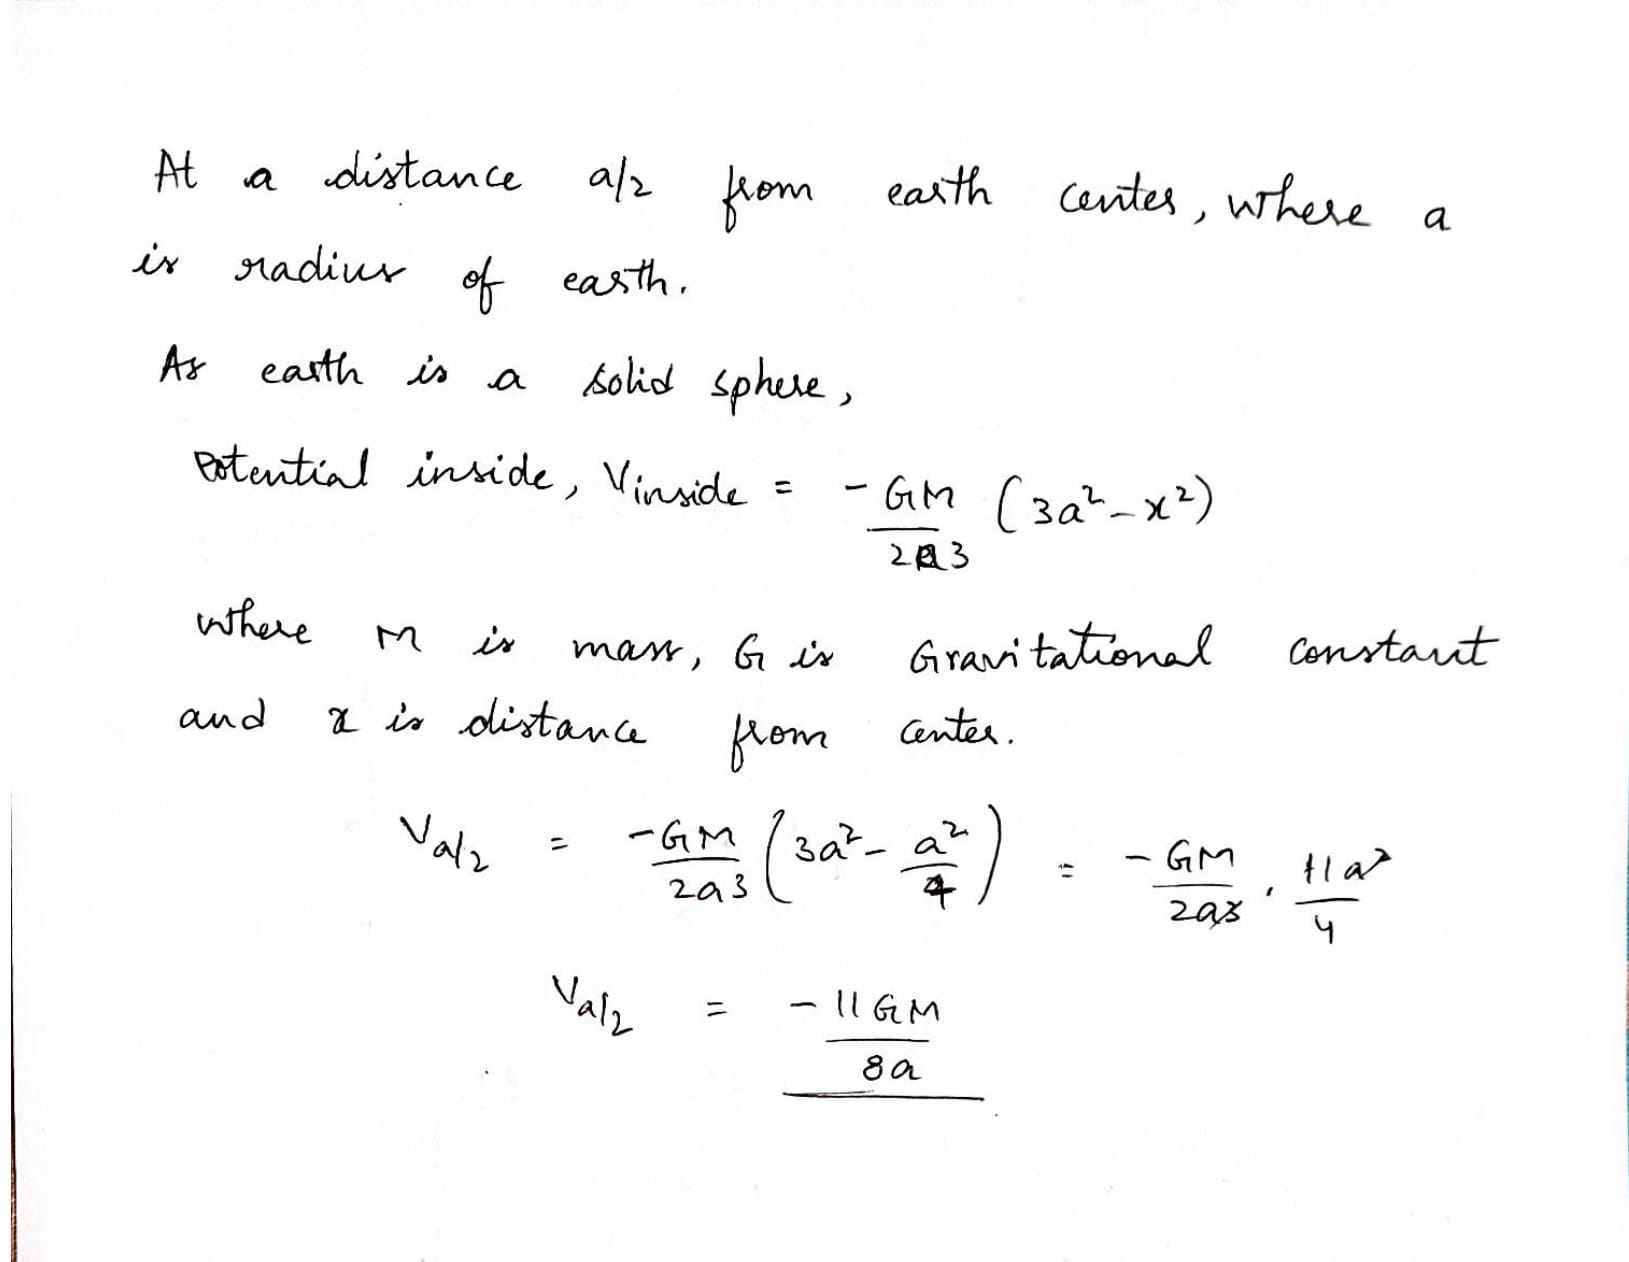 At a distance a/2 from earth center, where a
is radius of earth.
As earth is a solid sphere,
Potential inside, Vinside = - GM/2a3 (3a² - x²)
where M is mass, G is Gravitational constant
and x is distance from center.
Va/2 = -GM/2a3 (3a² - a²/4) = -GM/2a3 . 11a²/4
Va/2 = -11GM/8a